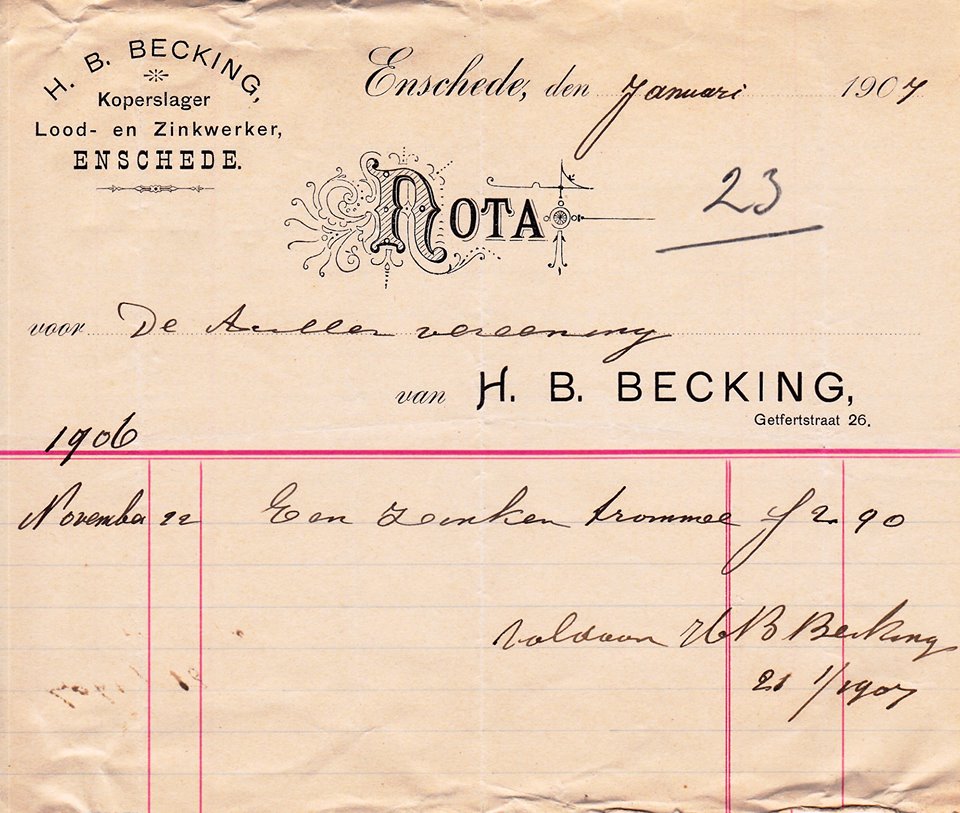 H. B. BECKING,
Koperslager
Lood- en Zinkwerker,
ENSCHEDE.
Enschede, den Januari 1907
NOTA
23
voor De vereening
van H. B. BECKING,
Getfertstraat 26.
1906
November 22 Een zinken trommel f 2.90
Voldaan HB Becking
21 1/1907